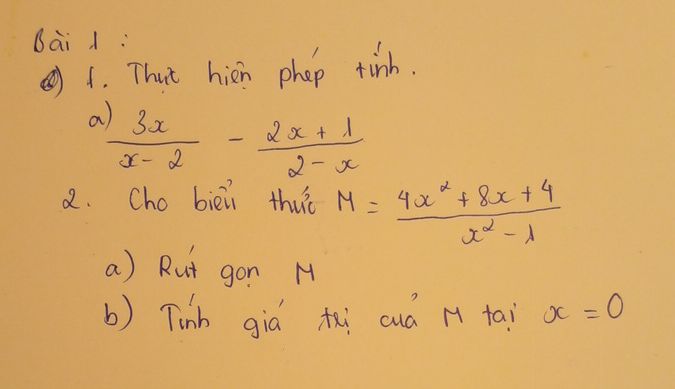 Bài 1 :
1. Thực hiện phép tính.
a) 3x / (x - 2) - (2x + 1) / (2 - x)
2. Cho biểu thức M = (4x² + 8x + 4) / (x² - 1)
a) Rút gọn M
b) Tính giá trị của M tại x = 0